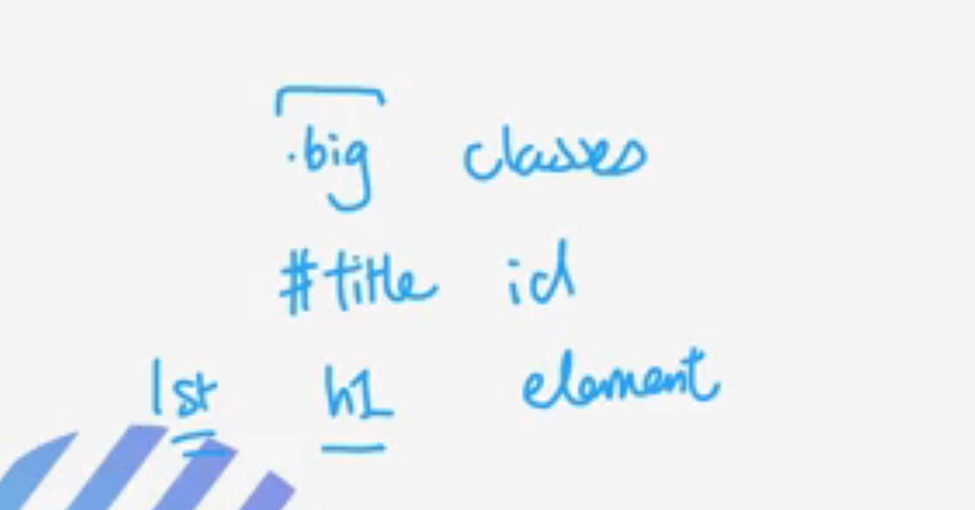 .big classes
#title id
1st h1 element